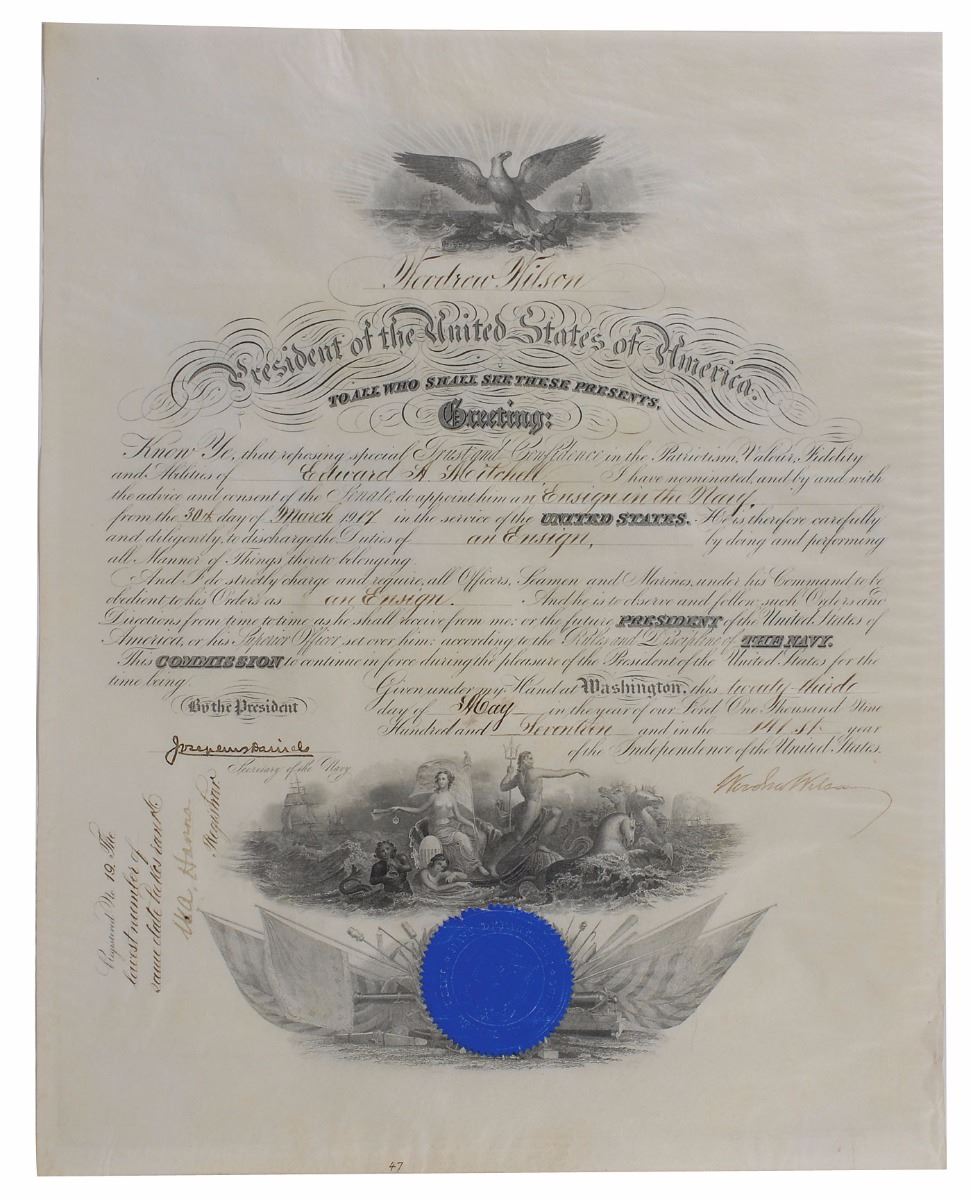 Woodrew Wilson
President of the United States of America.
TO ALL WHO SHALL SEE THESE PRESENTS,
Greeting:
Know Ye, that reposing special Trust and Confidence in the Patriotism, Valour, Fidelity
and Abilities of Edward A. Mitchell, I have nominated, and by and with
the advice and consent of the Senate, do appoint him an Ensign in the Navy,
from the 30th day of March 1917 in the service of the UNITED STATES. He is therefore carefully
and diligently to discharge the Duties of an Ensign, by doing and performing
all Manner of Things thereto belonging
And I do strictly charge and require, all Officers, Seamen and Marines, under his Command to be
obedient to his Orders as an Ensign. And he is to observe and follow such Orders and
Directions from time to time as he shall receive from me; or the future PRESIDENT of the United States of
America, or his Superior Officer set over him; according to the Rules and Discipline of THE NAVY.
This COMMISSION to continue in force during the pleasure of the President of the United States for the
time being.
Given under my Hand at Washington, this twenty-third
By the President
day of May in the year of our Lord One Thousand Nine
Hundred and Seventeen and in the 141st year
of the Independence of the United States.
Josephus Daniels
Secretary of the Navy
Woodrow Wilson
Registered No 19. The
lowest number of
same date takes rank
Registrar
47